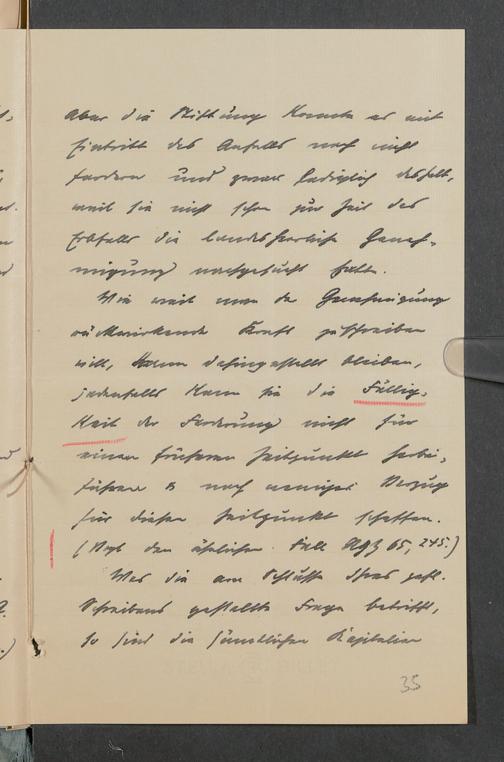 Aber die Stiftung konnte es mit
Eintritt des Anfalls noch nicht
fordern und zwar lediglich deshalb,
weil sie nicht schon zur Zeit des
Erbfalls die landesherrliche Geneh-
migung nachgesucht hatte.
Wie weit man der Genehmigung
rückwirkende Kraft zuschreiben
will, kann dahingestellt bleiben,
jedenfalls kann sie die Fällig-
keit der Forderung nicht für
einen früheren Zeitpunkt herbei-
führen noch weniger Verzug
für diesen Zeitpunkt schaffen.
(Vgl. den ähnlichen Fall RGZ 65, 245.)
Was die am Schlusse Ihres gefl.
Schreibens gestellte Frage betrifft,
so sind die sämtlichen Kapitalien
35